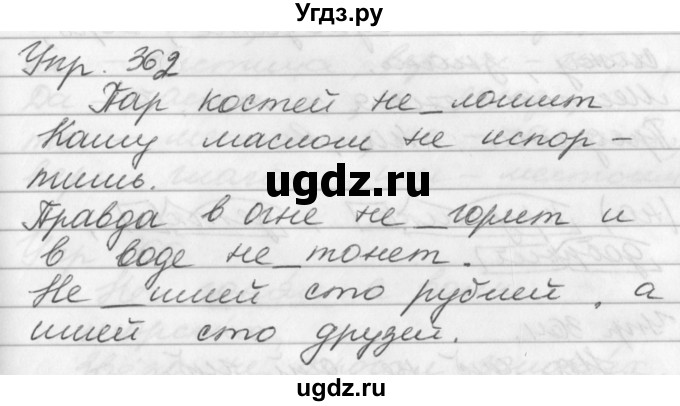 Угдз.ру
Упр. 362
Пар костей не_ломит
Кашу маслом не испор-
тишь.
ugdz.ru
Правда в огне не_горит и
в воде не_тонет.
Не_имей сто рублей, а
имей сто друзей.
ugdz.ru